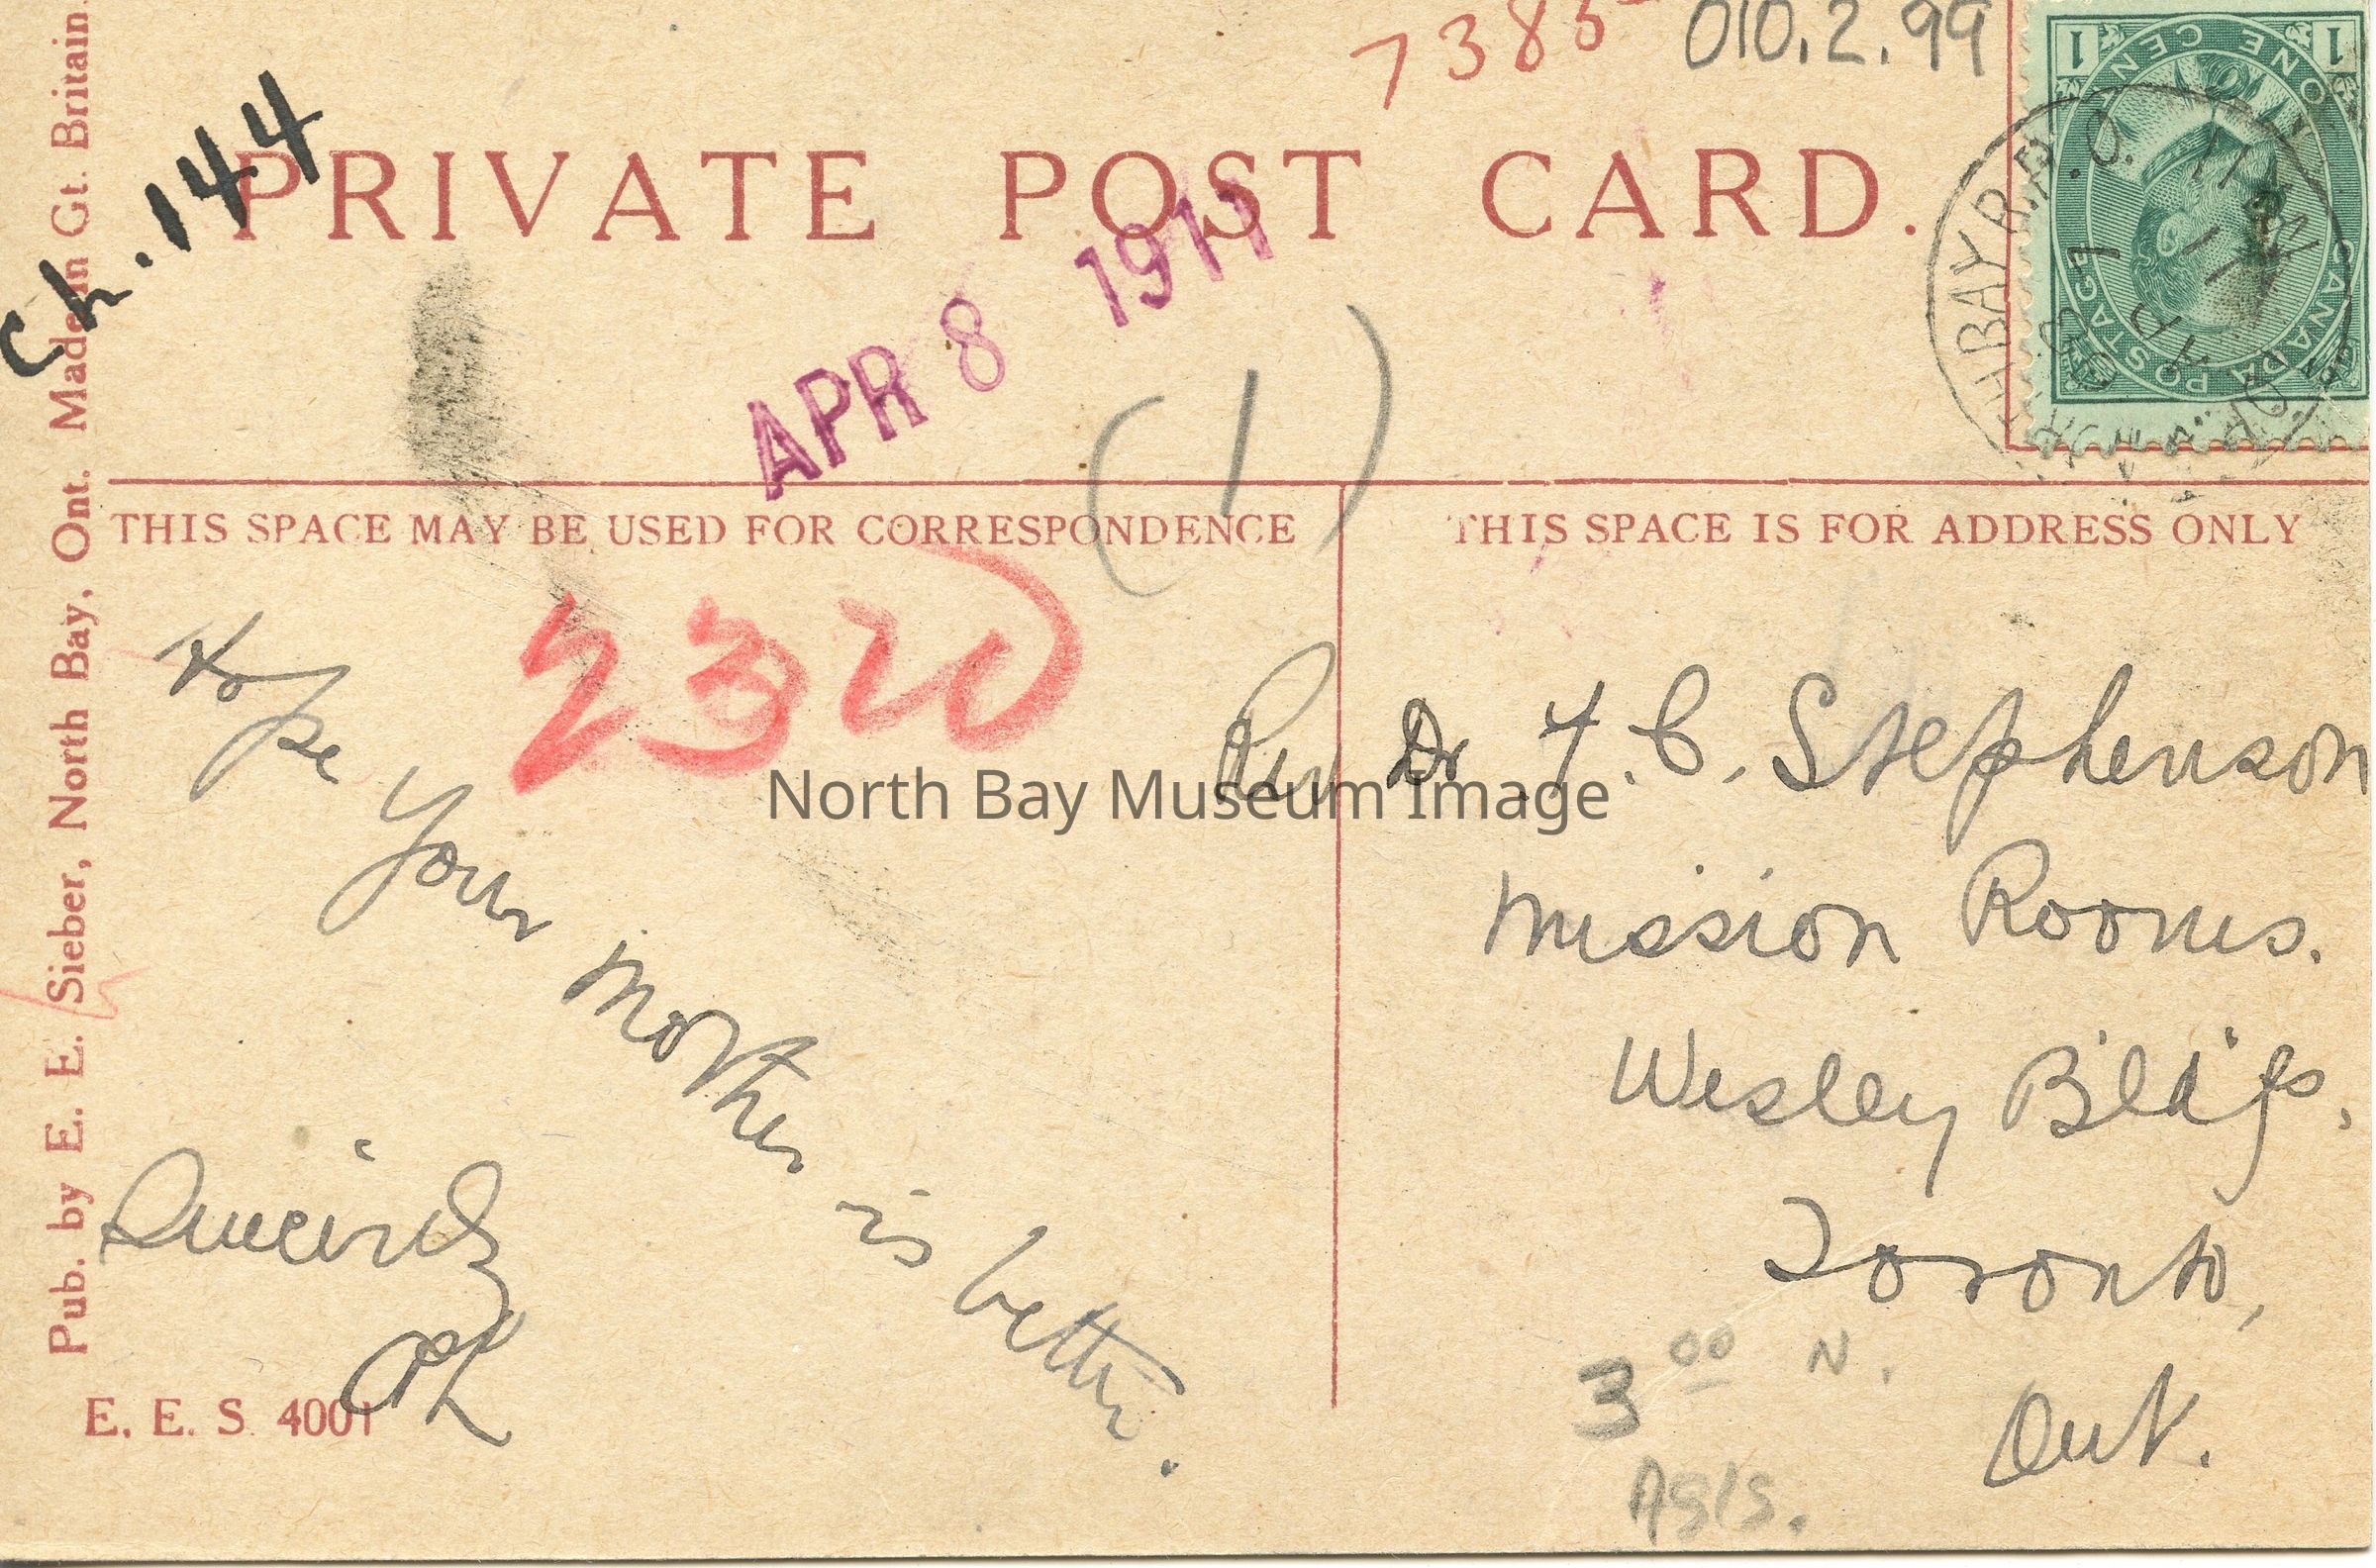 7385 010.2.99
Ch. 144
PRIVATE POST CARD.
APR 8 1911
ONE CENT
1 1
CANADA POSTAGE
(1)
THIS SPACE MAY BE USED FOR CORRESPONDENCE
THIS SPACE IS FOR ADDRESS ONLY
2320
Hope
Your
Mother
is better.
Sincerely
Rev Dr F. C. Stephenson
Mission Rooms.
Wesley Bldgs.
Toronto,
Ont.
3 00 N.
North Bay Museum Image
Pub. by E. E. Sieber, North Bay, Ont. Made in Gt. Britain.
E. E. S. 4001